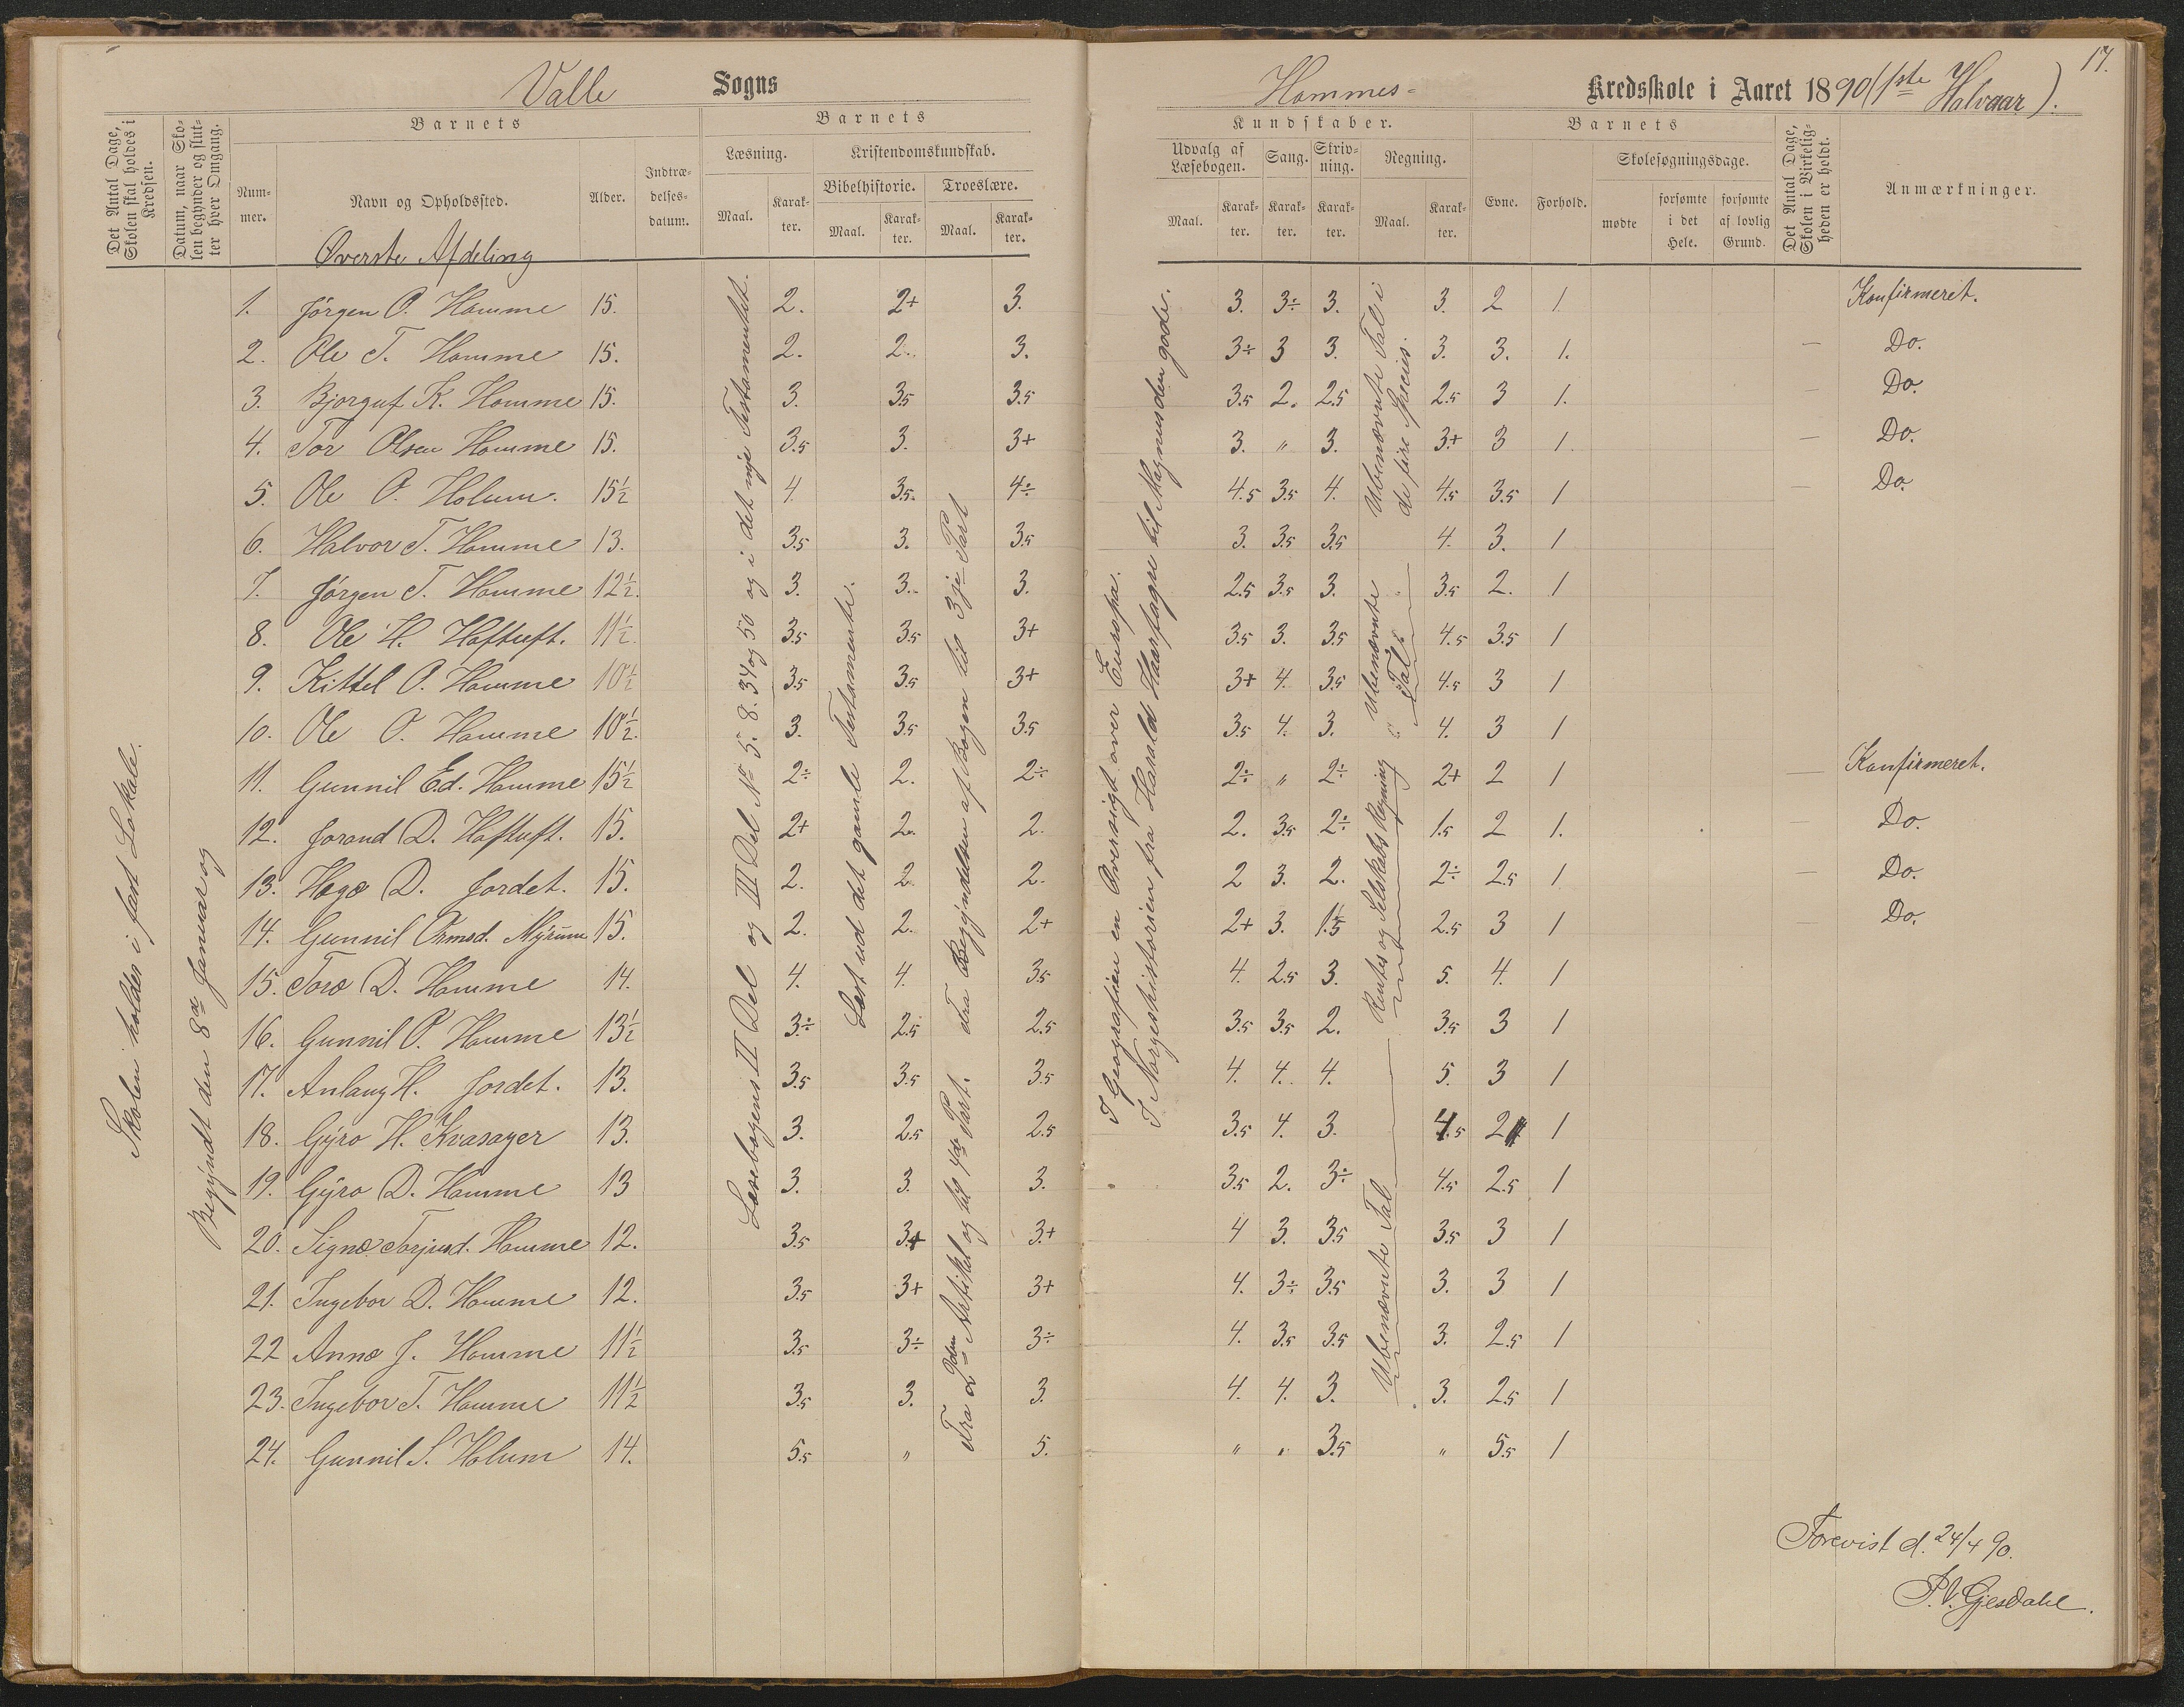 Valle Sogns
Hommes- Kredsskole i Aaret 1890 (1ste Halvaar).
17.
Det Antal Dage, Skolen skal holdes i Kredsen.
Datum, naar Skolen begynder og slutter hver Omgang.
Barnets
Nummer.
Navn og Opholdssted.
Alder.
Indtrædelsesdatum.
Barnets
Læsning.
Maal.
Karakter.
Kristendomskundskab.
Bibelhistorie.
Maal.
Karakter.
Troeslære.
Maal.
Karakter.
Kundskaber.
Udvalg af Læsebogen.
Maal.
Karakter.
Sang.
Karakter.
Skrivning.
Karakter.
Regning.
Maal.
Karakter.
Barnets
Evne.
Forhold.
Skolesøgningsdage.
mødte
forsømte i det Hele.
forsømte af lovlig Grund.
Det Antal Dage, Skolen i Virkeligheden er holdt.
Anmærkninger.
Øverste Afdeling
1. Jørgen O. Homme 15. 2. 2+ 3. 3. 3÷ 3. 3. 2 1 Konfirmeret.
2. Ole T. Homme 15. 2. 2. 3. 3÷ 3 3. 3. 3. 1. — Do.
3. Bjorguf K. Homme 15. 3. 3.5 3.5 3.5 2. 2.5 2.5 3 1. Do.
4. Tor Olsen Homme 15. 3.5 3. 3+ 3. " 3. 3+ 3 1. — Do.
5. Ole O. Holum. 15½ 4. 3.5. 4÷ 4.5 3.5 4. 4.5 3.5 1 — Do.
6. Halvor T. Homme 13. 3.5 3. 3.5 3. 3.5 3.5 4. 3. 1
7. Jørgen T. Homme 12½. 3. 3. 3. 2.5 3.5 3. 3.5 2. 1
8. Ole H. Haftuft. 11½. 3.5 3.5 3+ 3.5 3. 3.5 4.5 3.5 1
9. Kittel O. Homme 10½ 3.5 3.5 3+ 3+ 4. 3.5 4.5 3 1
10. Ole O. Homme 10½. 3. 3.5 3.5 3.5 4. 3. 4. 3 1
11. Gunnil Ed. Homme 15½ 2÷ 2. 2÷ 2÷ " 2÷ 2+ 2 1 — Konfirmeret.
12. Jorand D. Haftuft. 15. 2+ 2. 2. 2. 3.5 2÷ 1.5 2 1. — Do.
13. Hæge D. Jordet. 15. 2. 2 2. 2 3. 2. 2÷ 2.5 1 — Do.
14. Gunnil Ormsd. Myrum 15. 2. 2. 2+ 2+ 3. 1.5 2.5 3 1 — Do.
15. Toro D. Homme 14. 4. 4. 3.5 4. 2.5 3. 5. 4. 1
16. Gunnil O. Homme 13½ 3÷ 2.5 2.5 3.5 3.5 2. 3.5 3 1
17. Anlaug H. Jordet. 13. 3.5 3.5 3.5 4. 4. 4. 5. 3 1
18. Gyro H. Kvasager 13. 3. 2.5 2.5 3.5 4. 3. 4.5 2 1
19. Gyro D. Homme 13 3. 3. 3. 3.5 2. 3÷ 4.5 2.5 1
20. Signe Torjusd. Homme 12. 3.5 3+ 3+ 4 3. 3.5 3.5 3 1
21. Ingebor D. Homme 12. 3.5 3+ 3+ 4. 3÷ 3.5 3. 3 1
22 Anne J. Homme 11½ 3.5 3÷ 3÷ 4. 3.5 3.5 3. 2.5 1
23. Ingebor T. Homme 11½ 3.5 3. 3. 4. 4. 3. 3. 2.5 1
24. Gunnil S. Holum 14. 5.5 " 5. " " 3.5 " 5.5 1
Skolen holdes i fast Lokale.
Begyndt den 8de Januar og
Læsebogens II Del og III Del No 5. 8. 34 og 50 og i det nye Testamentet.
Læst ud det gamle Testamente.
Fra Begyndelsen af Bogen til 3je Part
Fra 2den Artikel og til 4de Part.
I Geografien en Oversigt over Europa.
I Norgeshistorien fra Harald Haarfagre til Magnus den gode.
Ubenævnte Tal i de fire Species.
Ubenævnte Tal.
Rentes og Selskabs Regning
Ubenævnte Tal
Forevist d. 24/4 90.
P.V. Gjesdahl.